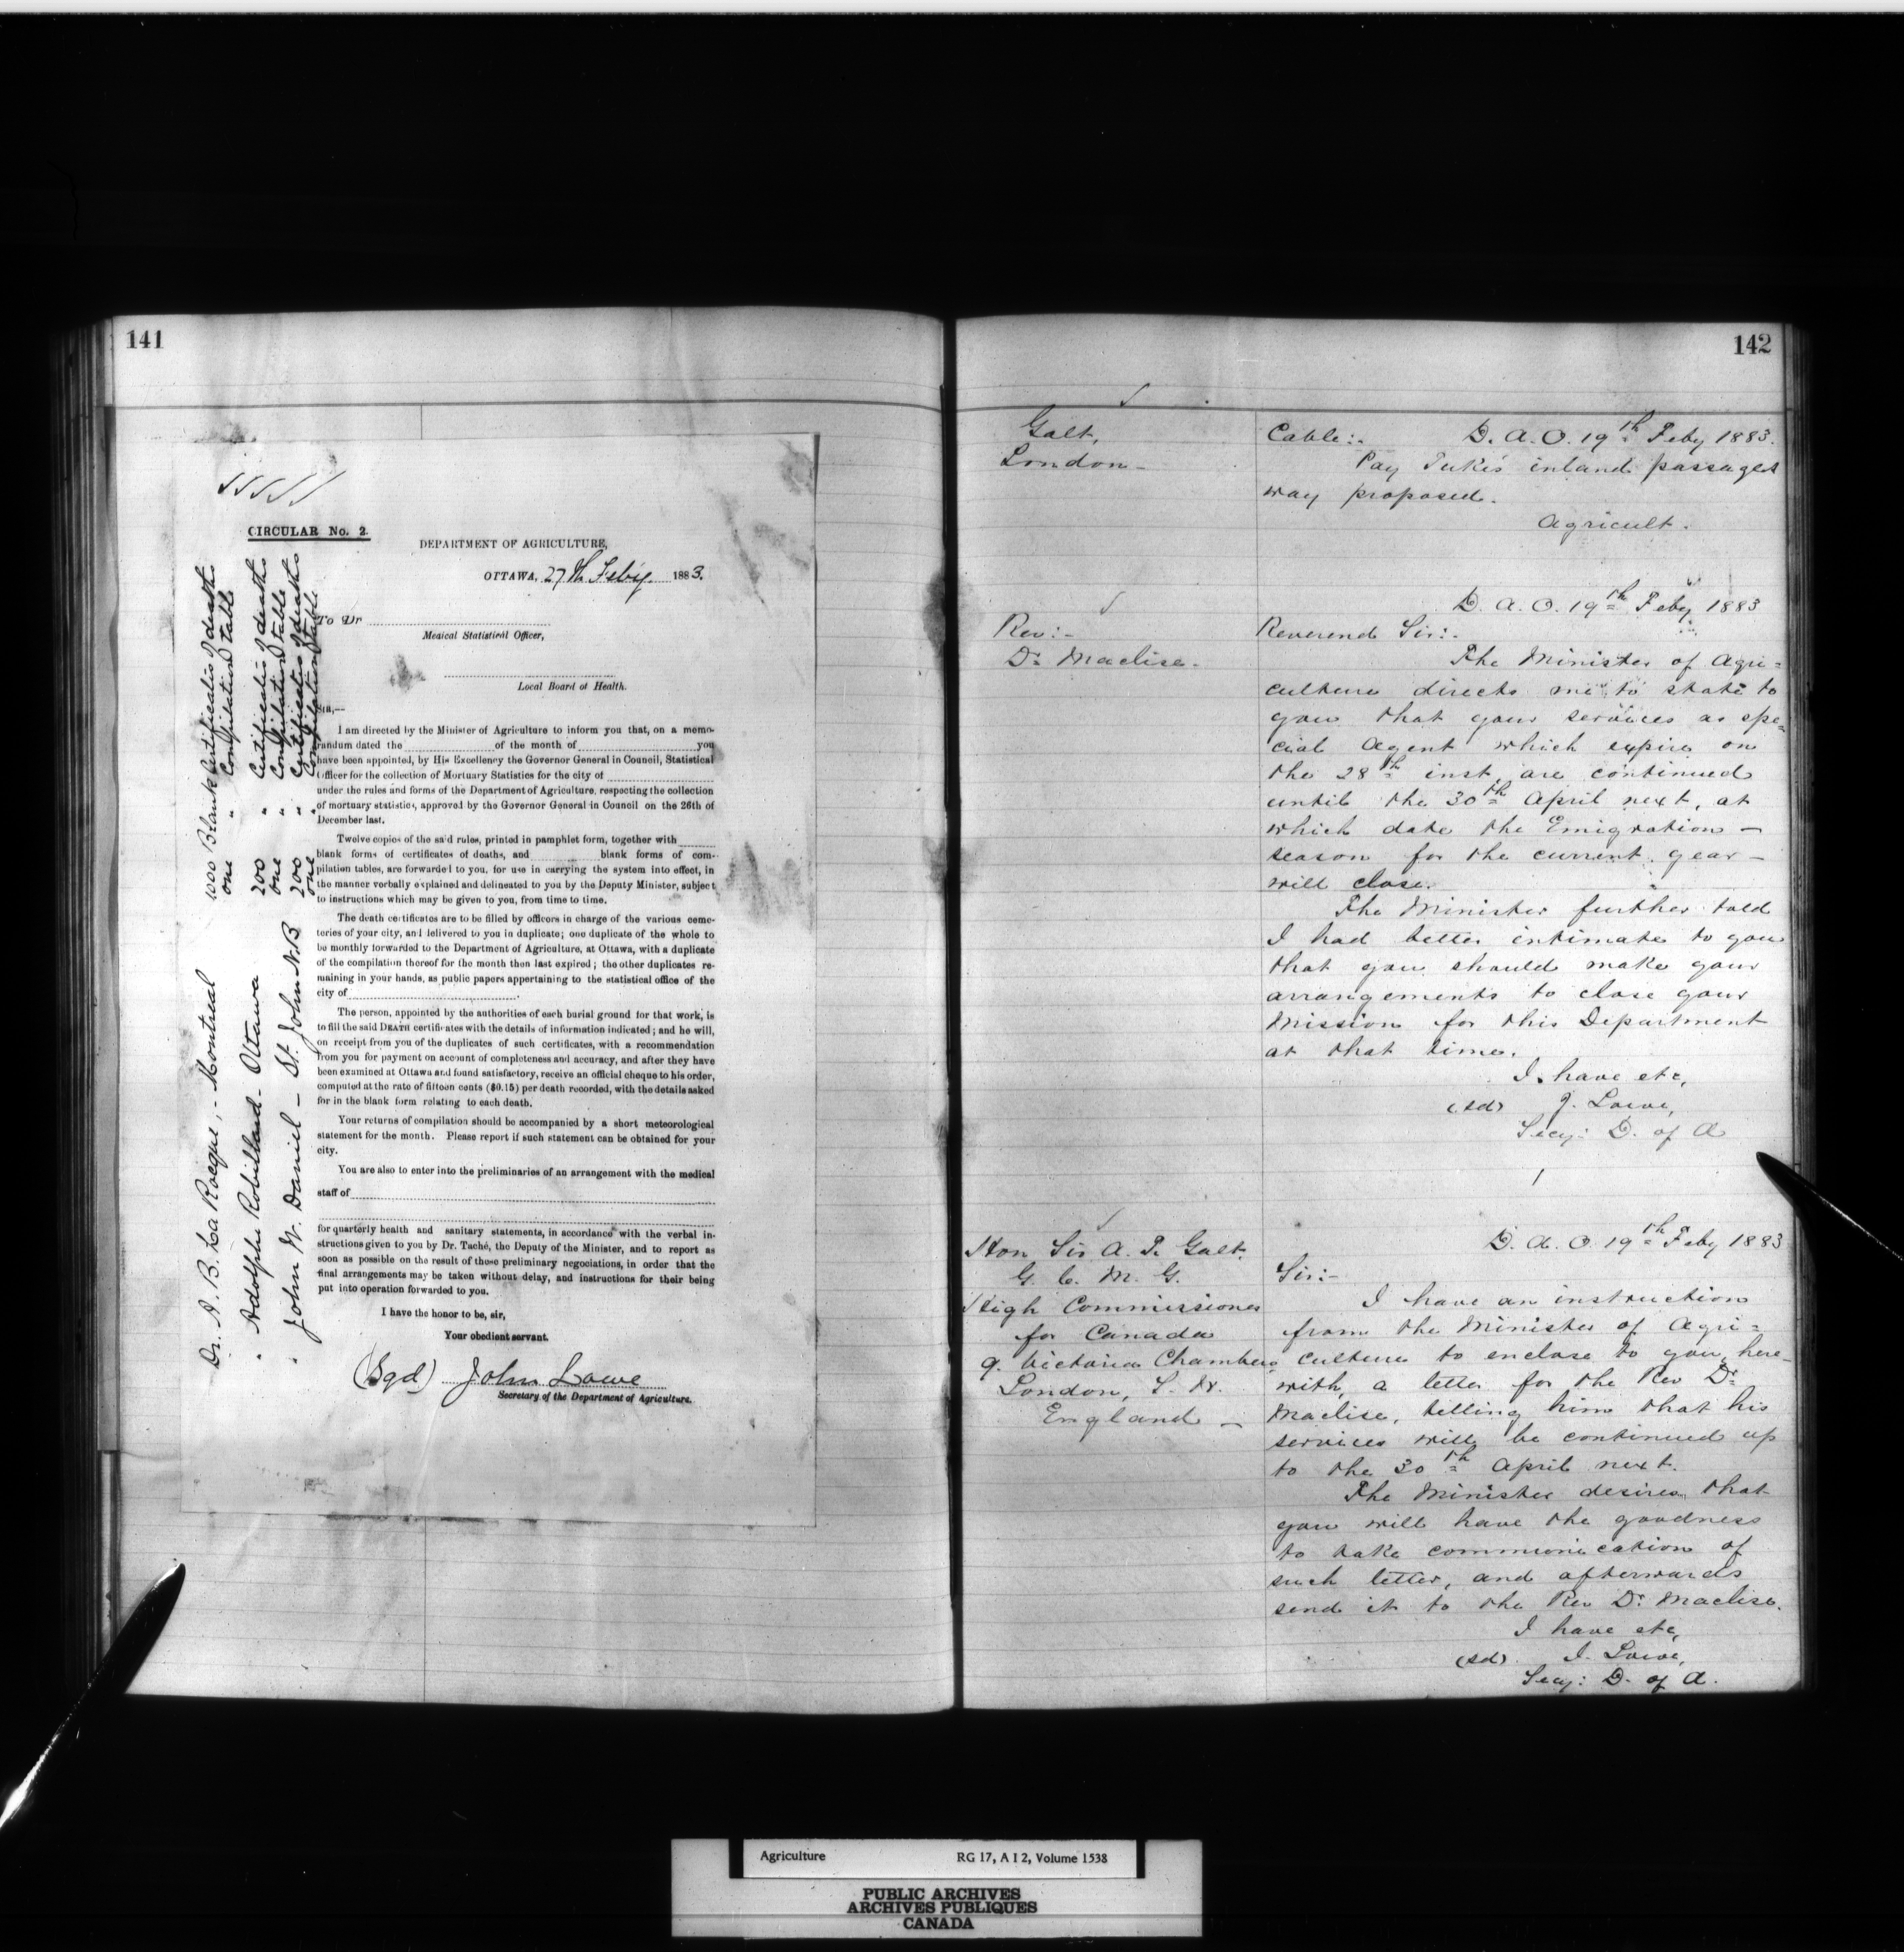 141
CIRCULAR No. 2.
DEPARTMENT OF AGRICULTURE,
OTTAWA, 27th Feby. 1883.
To Dr
Medical Statistical Officer,
Local Board of Health.
SIR,—
I am directed by the Minister of Agriculture to inform you that, on a memo-
randum dated the of the month of you
have been appointed, by His Excellency the Governor General in Council, Statistical
Officer for the collection of Mortuary Statistics for the city of
under the rules and forms of the Department of Agriculture, respecting the collection
of mortuary statistics, approved by the Governor General in Council on the 26th of
December last.
Twelve copies of the said rules, printed in pamphlet form, together with
blank forms of certificates of deaths, and blank forms of com-
pilation tables, are forwarded to you, for use in carrying the system into effect, in
the manner verbally explained and delineated to you by the Deputy Minister, subject
to instructions which may be given to you, from time to time.
The death certificates are to be filled by officers in charge of the various ceme-
teries of your city, and delivered to you in duplicate; one duplicate of the whole to
be monthly forwarded to the Department of Agriculture, at Ottawa, with a duplicate
of the compilation thereof for the month then last expired; the other duplicates re-
maining in your hands, as public papers appertaining to the statistical office of the
city of .
The person, appointed by the authorities of each burial ground for that work, is
to fill the said DEATH certificates with the details of information indicated; and he will,
on receipt from you of the duplicates of such certificates, with a recommendation
from you for payment on account of completeness and accuracy, and after they have
been examined at Ottawa and found satisfactory, receive an official cheque to his order,
computed at the rate of fifteen cents ($0.15) per death recorded, with the details asked
for in the blank form relating to each death.
Your returns of compilation should be accompanied by a short meteorological
statement for the month. Please report if such statement can be obtained for your
city.
You are also to enter into the preliminaries of an arrangement with the medical
staff of
for quarterly health and sanitary statements, in accordance with the verbal in-
structions given to you by Dr. Taché, the Deputy of the Minister, and to report as
soon as possible on the result of those preliminary negociations, in order that the
final arrangements may be taken without delay, and instructions for their being
put into operation forwarded to you.
I have the honor to be, sir,
Your obedient servant.
(Sgd) John Lowe
Secretary of the Department of Agriculture.
Dr. A. B. La Rocque, - Montreal 1000 Blank Certificates of death
one " Compilation table
" Adolphe Robillard - Ottawa 200 " Certificates of deaths
one " Compilation table
" John W. Daniel - St. John N.B 200 " Certificates of deaths
one " Compilation table
142
Galt,
London -
Cable:- D. A. O. 19th Feby 1883.
Pay Tuke's inland passages
way proposed.
Agricult.
D. A. O. 19th Feby 1883
Rev:-
Dr. Maclise -
Reverend Sir:-
The Minister of Agri=
culture directs me to state to
you that your services as spe=
cial Agent which expire on
the 28th inst. are continued
until the 30th April next, at
which date the Emigration -
season for the current year -
will close.
The Minister further told
I had better intimate to you
that you should make your
arrangements to close your
Mission for this Department
at that time.
I have etc,
(sd) J. Lowe,
Secy: D. of A
D. A. O. 19th Feby 1883
Hon Sir A. T. Galt.
G. C. M. G.
High Commissioner
for Canada
9. Victoria Chambers
London, S. W.
England -
Sir:-
I have an instruction
from the Minister of Agri=
culture to enclose to you, here-
with, a letter for the Rev Dr.
Maclise, telling him that his
services will be continued up
to the 30th April next.
The Minister desires that
you will have the goodness
to take communication of
such letter, and afterwards
send it to the Rev Dr. Maclise.
I have etc,
(sd) J. Lowe,
Secy: D. of A.
Agriculture RG 17, A I 2, Volume 1538
PUBLIC ARCHIVES
ARCHIVES PUBLIQUES
CANADA